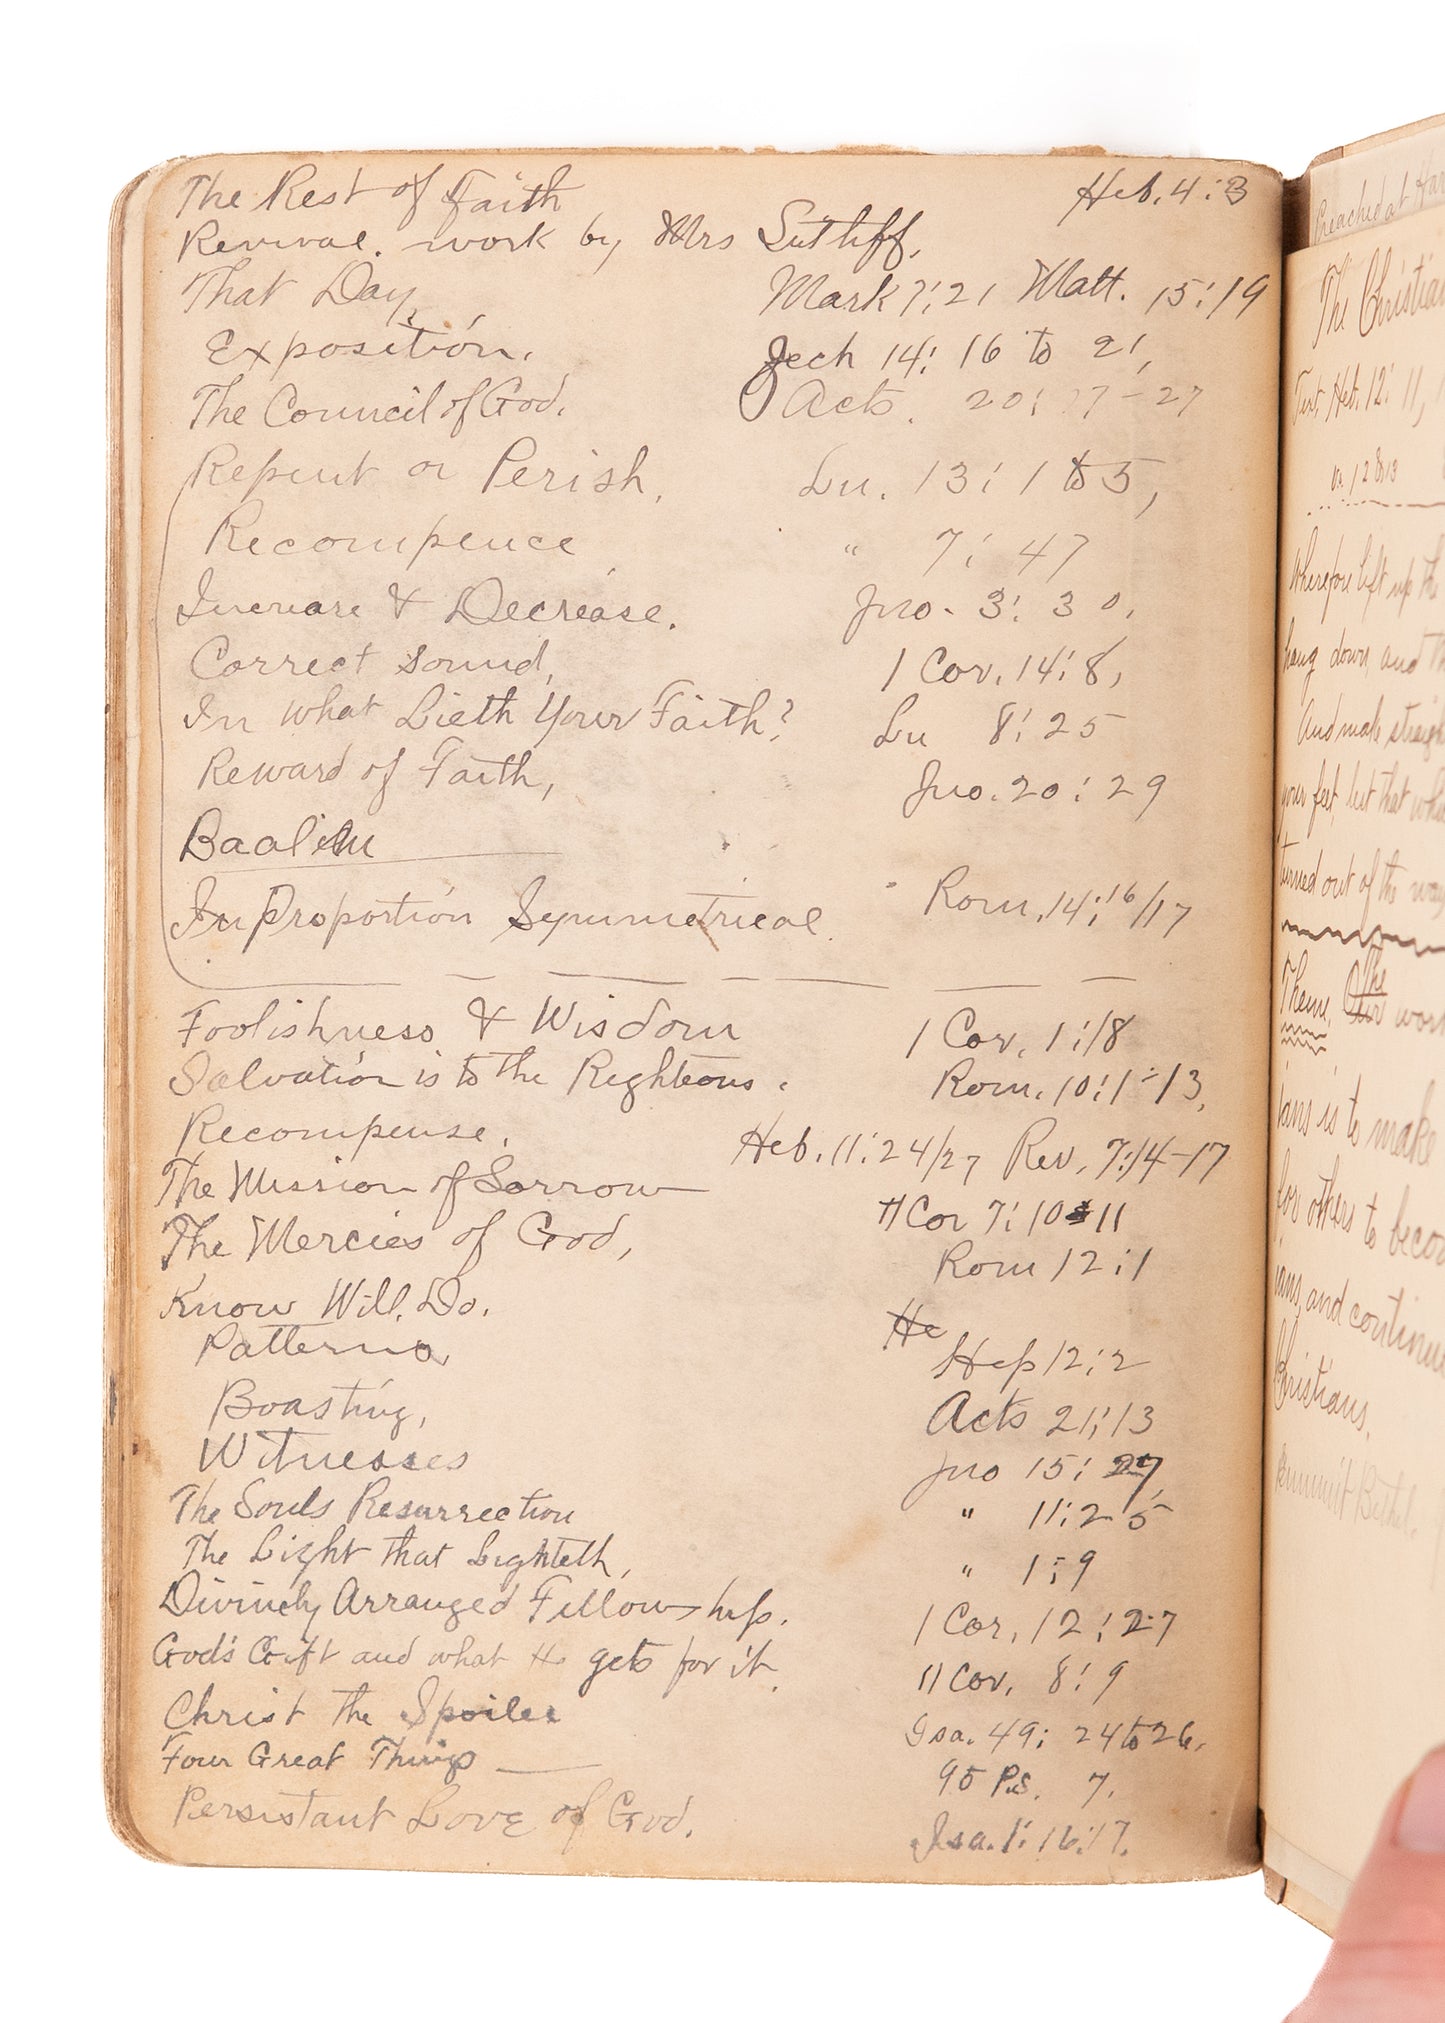 The Rest of Faith Heb. 4:3
Revival. work by Mrs Sutliff.
That Day, Mark 7:21 Matt. 15:19
Exposition. Zech 14: 16 to 21,
The Council of God. Acts. 20: 17-27
Repent or Perish. Lu. 13: 1 to 5,
Recompence " 7: 47
Increase & Decrease. Jno. 3: 30.
Correct sound, 1 Cor. 14: 8,
In what Lieth Your Faith? Lu 8: 25
Reward of Faith, Jno. 20: 29
Baalim
In Proportion Symmetrical. Rom. 14: 16/17
Foolishness & Wisdom 1 Cor. 1:18
Salvation is to the Righteous. Rom. 10:1-13,
Recompense. Heb. 11:24/27 Rev. 7:14-17
The Mission of Sorrow II Cor 7: 10 & 11
The Mercies of God, Rom 12:1
Know Will. Do. He
Patterns, Hep 12:2
Boasting, Acts 21:13
Witnesses Jno 15: 27,
The Souls Resurrection " 11:25
The Light that Lighteth, " 1:9
Divinely Arranged Fellowship. 1 Cor. 12:27
God's Gift and what He gets for it. II Cor. 8:9
Christ the Spoiler Isa. 49: 24 to 26.
Four Great Things 95 Ps. 7.
Persistant Love of God. Isa. 1: 16:17.
Preached at
The Christian
Text. Heb. 12: 11,
v. 12 & 13
Wherefore lift up the
hang down, and
And make straigh
your feet, lest that
turned out of the way
The
Theme. Our
ians is to make
for others to becom
ians, and continue
Christians.
Summit Bethel.